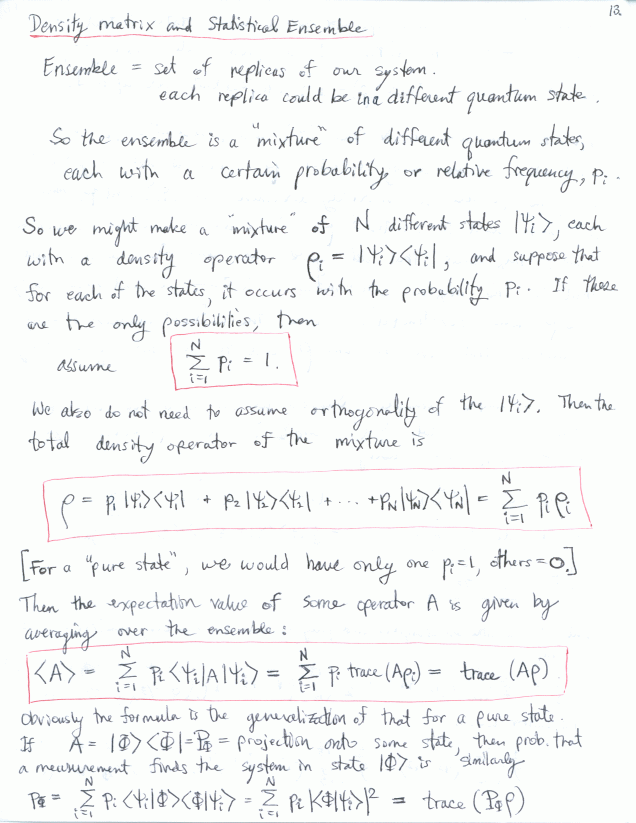 13
Density matrix and Statistical Ensemble
Ensemble = set of replicas of our system.
each replica could be in a different quantum state.
So the ensemble is a "mixture" of different quantum states,
each with a certain probability, or relative frequency, pᵢ.
So we might make a "mixture" of N different states |ψᵢ>, each
with a density operator ρᵢ = |ψᵢ><ψᵢ|, and suppose that
for each of the states, it occurs with the probability pᵢ. If these
are the only possibilities, then
assume ∑_{i=1}^{N} pᵢ = 1.
We also do not need to assume orthogonality of the |ψᵢ>. Then the
total density operator of the mixture is
ρ = p₁|ψ₁><ψ₁| + p₂|ψ₂><ψ₂| + ... + p_N|ψ_N><ψ_N| = ∑_{i=1}^{N} pᵢρᵢ
[For a "pure state", we would have only one pᵢ=1, others = 0.]
Then the expectation value of some operator A is given by
averaging over the ensemble:
<A> = ∑_{i=1}^{N} pᵢ<ψᵢ|A|ψᵢ> = ∑_{i=1}^{N} pᵢ trace(Aρᵢ) = trace (Aρ)
Obviously the formula is the generalization of that for a pure state.
If A = |Φ><Φ| = P_Φ = projection onto some state, then prob. that
a measurement finds the system in state |Φ> is similarly
P_Φ = ∑_{i=1}^{N} pᵢ<ψᵢ|Φ><Φ|ψᵢ> = ∑_{i=1}^{N} pᵢ|<Φ|ψᵢ>|² = trace (P_Φρ)